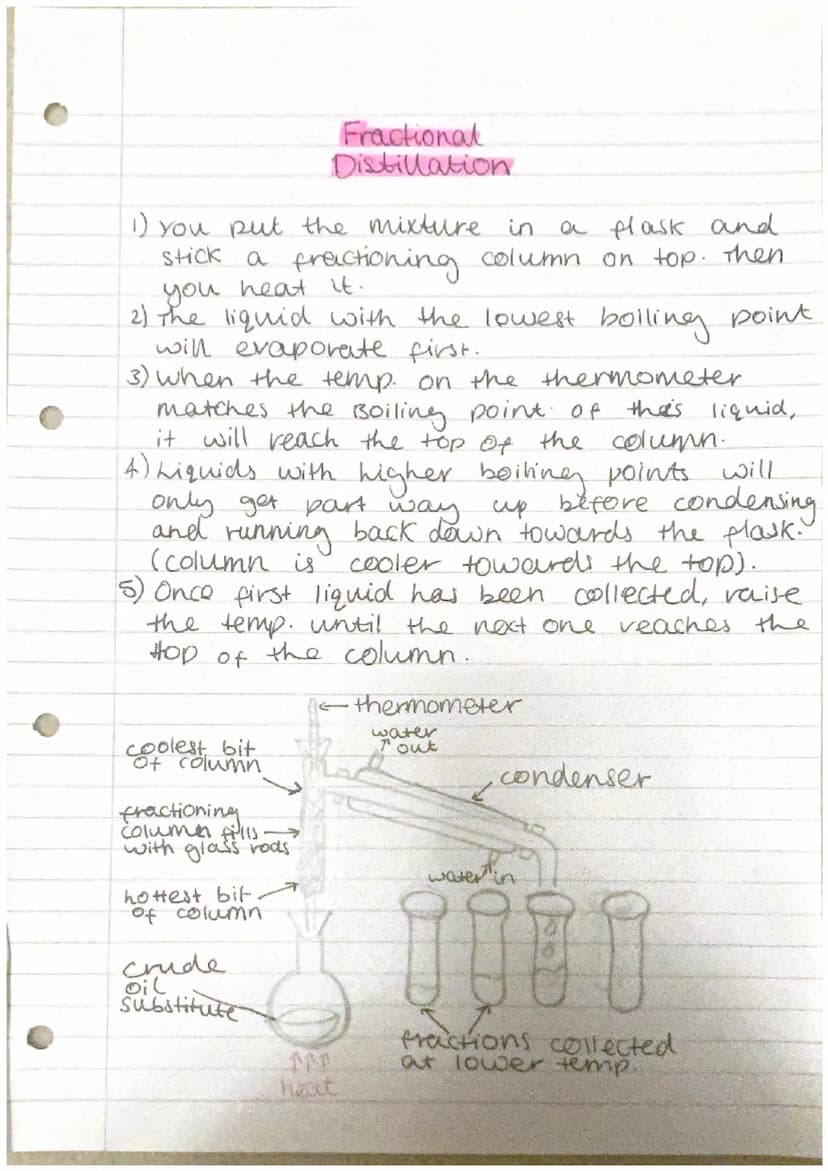 Fractional
Distillation
1) you put the mixture in a flask and
stick a fractioning column on top. Then
you heat it.
2) The liquid with the lowest boiling point
will evaporate first.
3) when the temp. on the thermometer
matches the Boiling point of this liquid,
it will reach the top of the column.
4) Liquids with higher boiling points will
only get part way up before condensing
and running back down towards the flask.
(column is cooler towards the top).
5) Once first liquid has been collected, raise
the temp. until the next one reaches the
top of the column.
thermometer
water
out
coolest bit
of column
condenser
fractioning
column fills
with glass rods
water in
hottest bit
of column
crude
oil
substitute
fractions collected
at lower temp.
heat